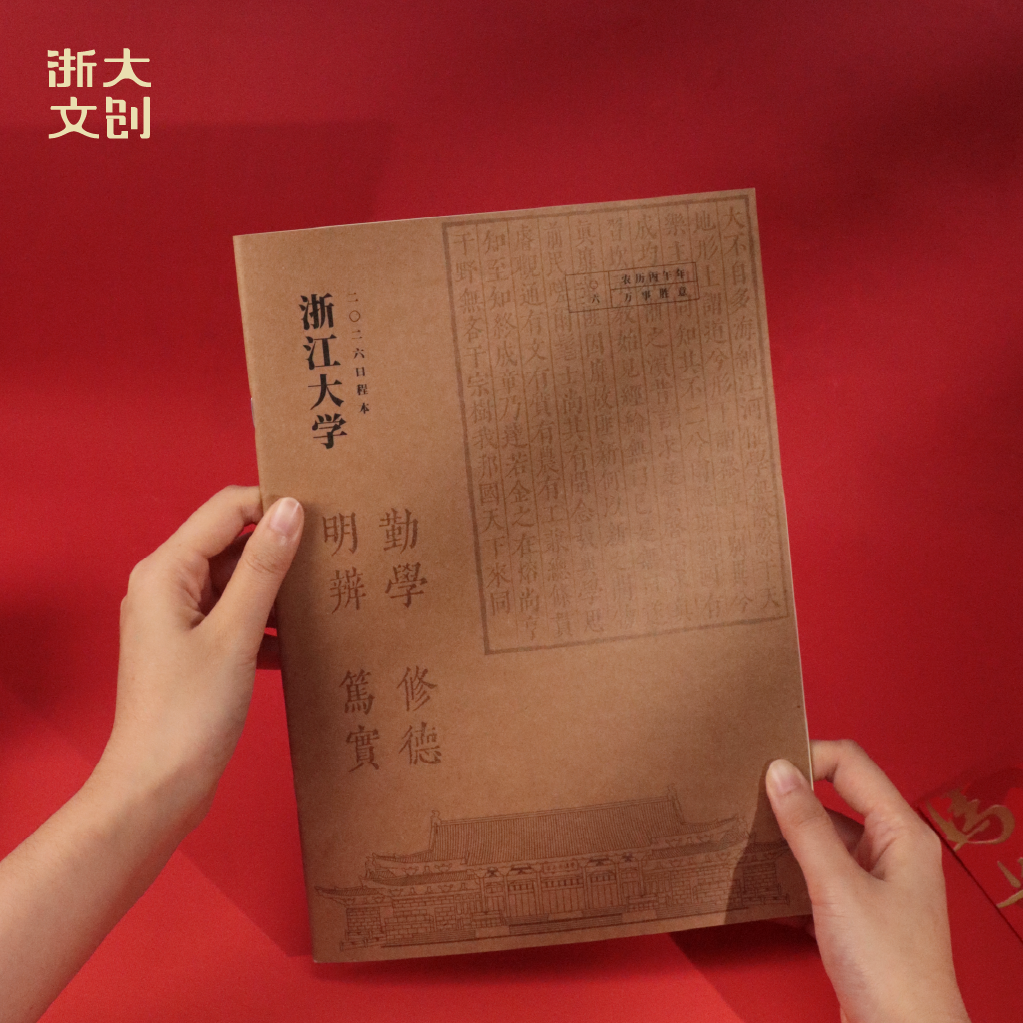 浙大
文创
二〇二六日程本
浙江大学
农历丙午年
万事胜意
六
大不自多海納江河惟學無際際于天
地形上謂道兮形下謂器禮主別異兮
樂主和同知其不二兮爾聽斯聰國有
成均在浙之濱昔言求是實啟爾求真
習坎示教始見經綸無曰已是無曰遂
真靡革匪因靡故匪新何以新之開物
前民嗟爾髦士尚其有聞念哉典學思
睿觀通有文有質有農有工兼總條貫
知至知終成章乃達若金之在熔尚亨
于野無吝于宗樹我邦國天下來同
勤學
明辨
修德
篤實